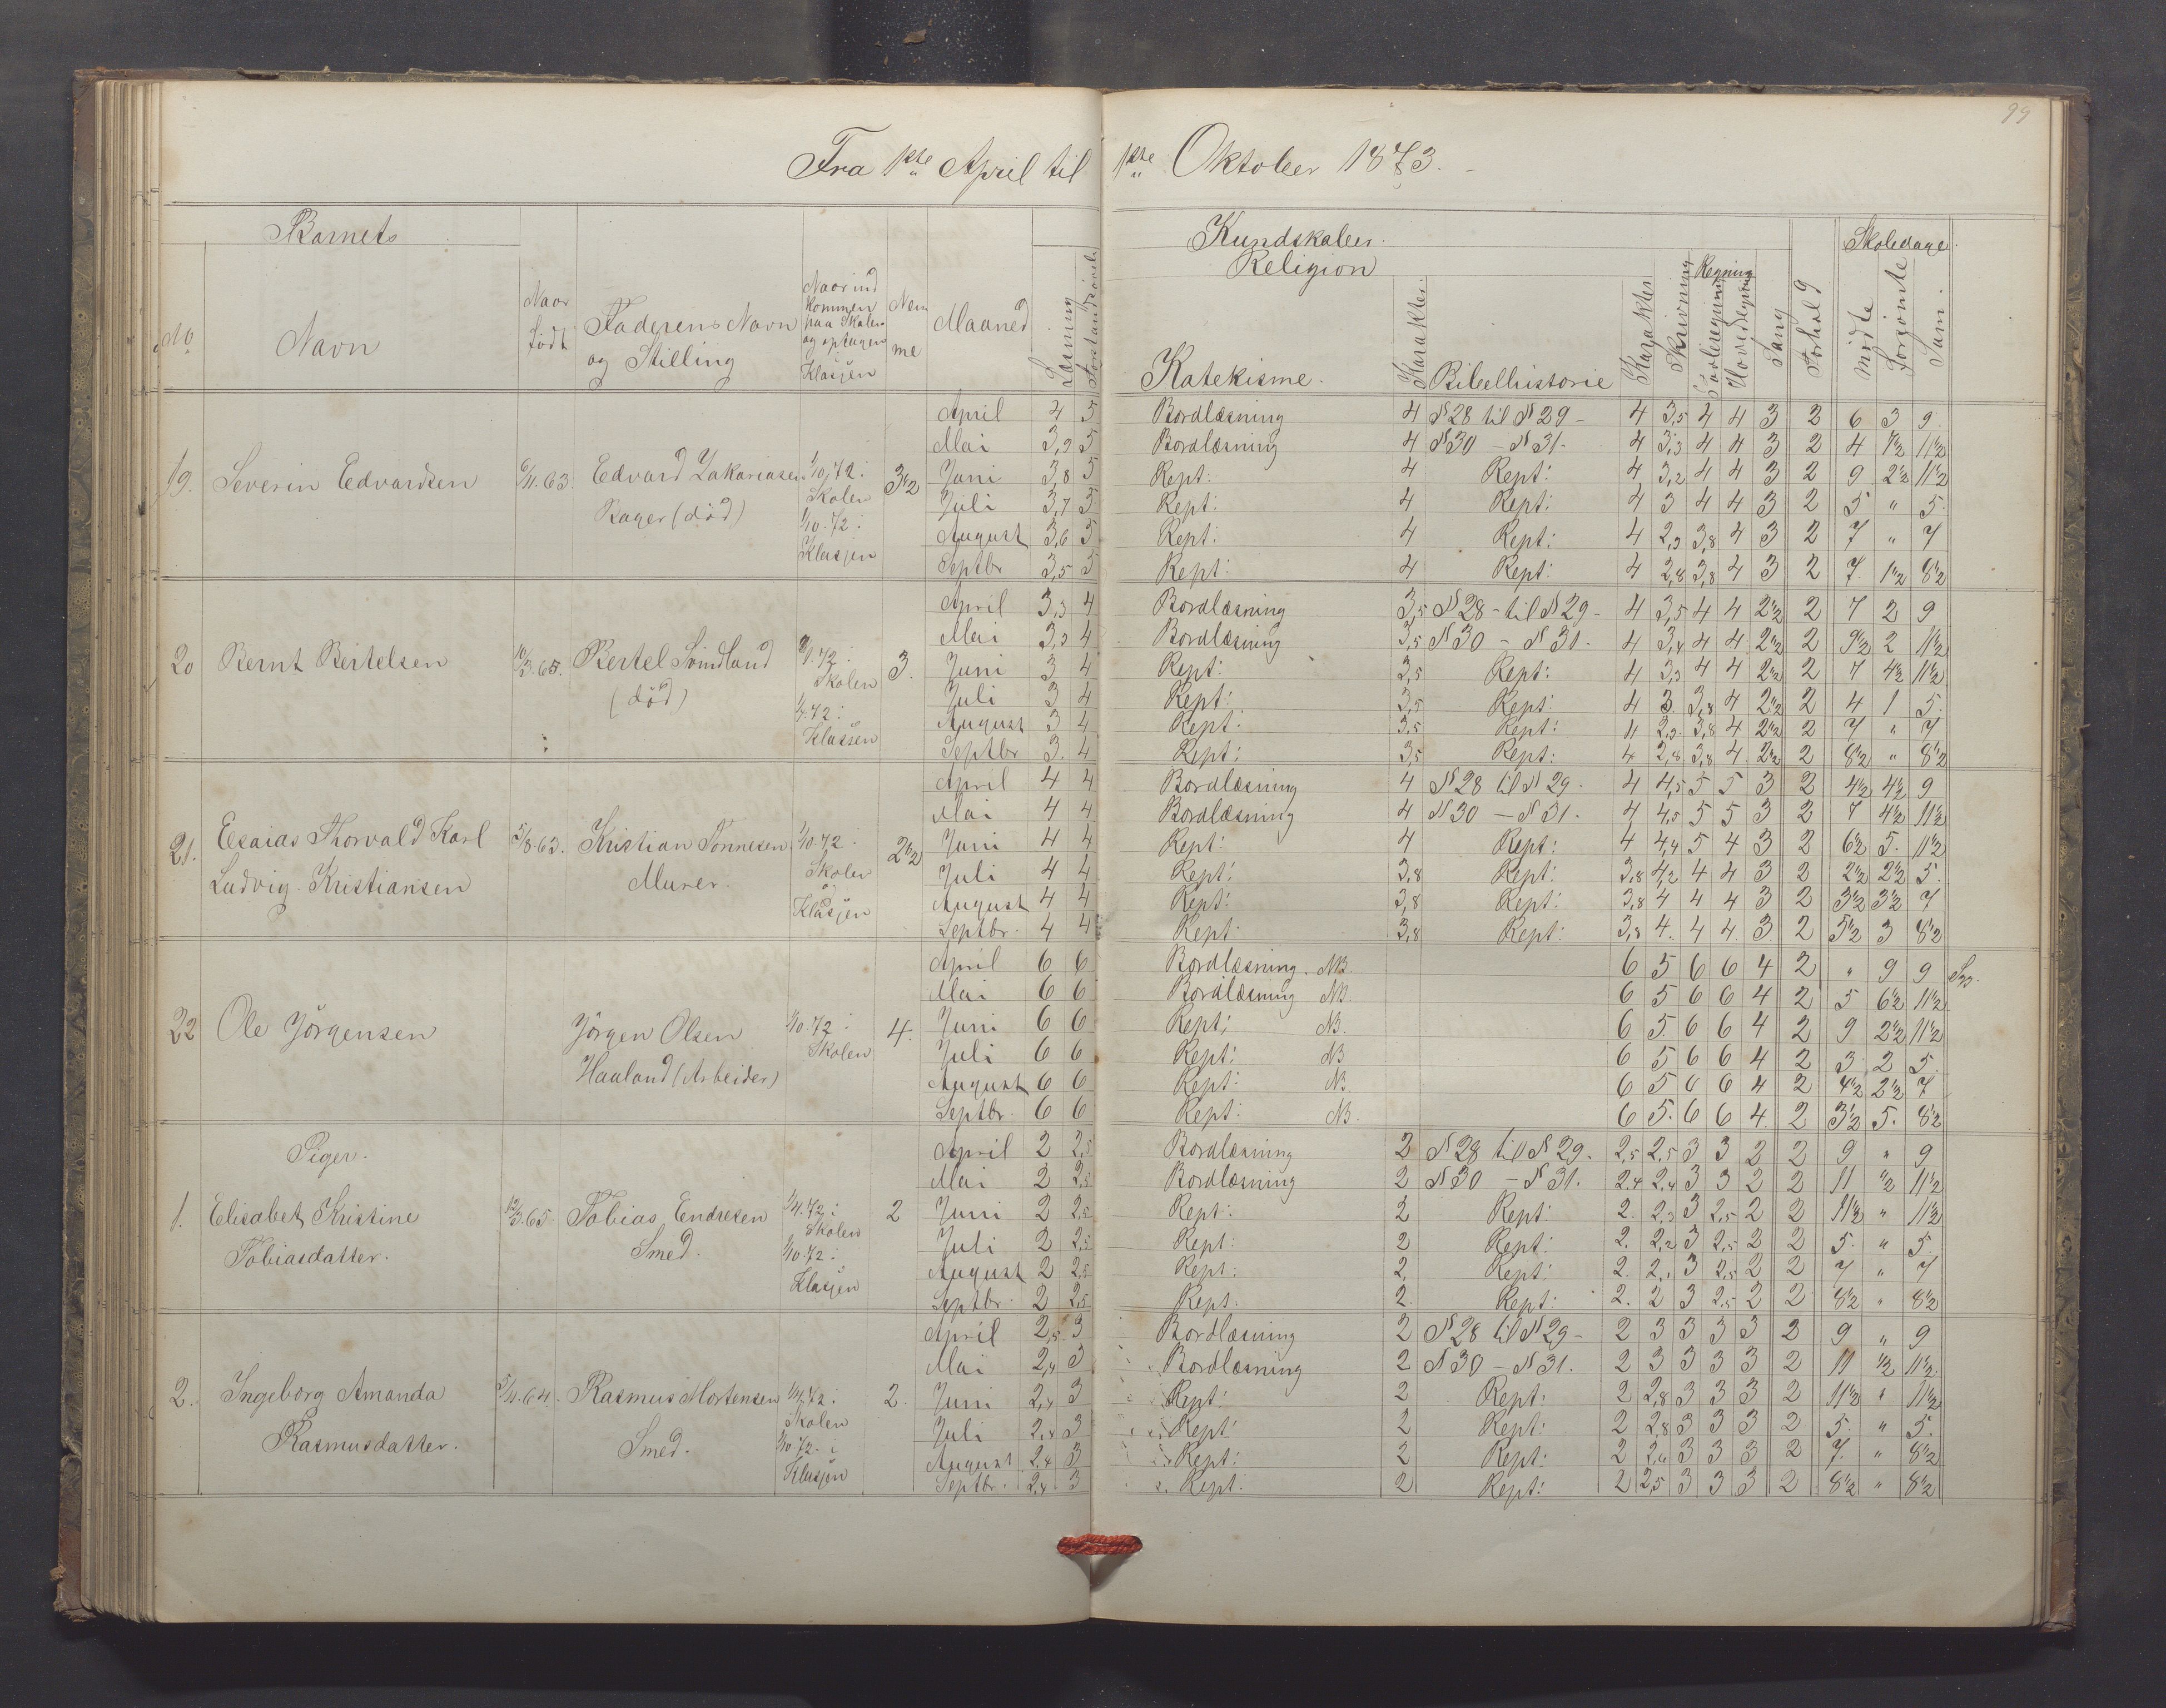 99
Fra 1ste April til 1ste Oktober 1873.
Barnets
Kundskaber.
Skoledage.
Religion
No
Navn
Naar født
Faderens Navn og Stilling
Naar indkommen paa Skolen og optagen i Klassen
Nemme
Maaned
Læsning
Forstandsøvelse
Katekisme.
Karakter.
Bibelhistorie
Karakter
Skrivning
Regning
Tavleregning
Hovedregning
Sang
Forhold
Mødte
Forsømte
Sum.
19. Severin Edvardsen 6/11.63. Edvard Zakariasen Bager (død) 1/10.72 i Skolen 1/10.72 i Klassen 3 1/2
April 4 5 Bordlæsning 4 N 28 til N 29 - 4 3,5 4 4 3 2 6 3 9
Mai 3,9 5 Bordlæsning 4 N 30 - N 31. 4 3,3 4 4 3 2 4 7 1/2 11 1/2
Juni 3,8 5 Rept: 4 Rept: 4 3,2 4 4 3 2 9 2 1/2 11 1/2
Juli 3,7 5 Rept: 4 Rept: 4 3 4 4 3 2 5 " 5.
August 3,6 5 Rept: 4 Rept: 4 2,9 3,8 4 3 2 7 " 7
Septbr 3,5 5 Rept: 4 Rept: 4 2,8 3,8 4 3 2 7. 1 1/2 8 1/2
20 Bernt Bertelsen 10/3.65. Bertel Svindland (død) 8/1.72 i Skolen 1/4.72 i Klassen 3.
April 3,3 4 Bordlæsning 3,5 N 28 - til N 29 - 4 3,5 4 4 2 1/2 2 7 2 9
Mai 3,3 4 Bordlæsning 3,5 N 30 - N 31. 4 3,4 4 4 2 1/2 2 9 1/2 2 11 1/2
Juni 3 4 Rept: 3,5 Rept: 4 3,3 4 4 2 1/2 2 7 4 1/2 11 1/2
Juli 3 4 Rept: 3,5 Rept: 4 3 3,8 4 2 1/2 2 4 1 5.
August 3 4 Rept: 3,5 Rept: 4 2,9 3,8 4 2 1/2 2 7 " 7
Septbr 3. 4 Rept: 3,5 Rept: 4 2,8 3,8 4 2 1/2 2 8 1/2 " 8 1/2
21. Esaias Thorvald Karl Ludvig Kristiansen 5/8 63. Kristian Tønnesen Murer. 1/10.72 i Skolen og Klassen 2 1/2
April 4 4 Bordlæsning 4 N 28 til N 29 - 4 4,5 5 5 3 2 4 1/2 4 1/2 9
Mai 4 4 Bordlæsning 4 N 30 - N 31. 4 4,5 5 5 3 2 7 4 1/2 11 1/2
Juni 4 4 Rept: 4 Rept: 4 4,4 5 4 3 2 6 1/2 5. 11 1/2
Juli 4 4 Rept: 3,8 Rept: 3,8 4,2 4 4 3 2 2 1/2 2 1/2 5.
August 4 4 Rept: 3,8 Rept: 3,8 4 4 4 3 2 3 1/2 3 1/2 7
Septbr. 4 4 Rept: 3,8 Rept: 3,8 4. 4 4. 3 2 5 1/2 3 8 1/2
22 Ole Jörgensen Jörgen Olsen Hauland (Arbeider) 1/10.72 i Skolen 4.
April 6 6 Bordlæsning. NB. 6 5 6 6 4 2 " 9 9
Mai 6 6 Bordlæsning NB. 6 5 6 6 4 2 5 6 1/2 11 1/2
Juni 6 6 Rept: NB. 6 5. 6 6 4 2 9 2 1/2 11 1/2
Juli 6 6 Rept: NB 6 5 6 6 4 2 3 2 5.
August 6 6 Rept: NB 6 5 6 6 4 2 4 1/2 2 1/2 7
Septbr. 6 6 Rept: NB. 6 5. 6 6 4. 2 3 1/2 5. 8 1/2
Piger.
1. Elisabet Kristine Tobiasdatter. 12/3.65 Tobias Endresen Smed. 1/4.72 i Skolen 1/10.72 i Klassen 2
April 2 2,5 Bordlæsning 2 N 28 til N 29. 2,5 2,5 3 3 2 2 9 " 9
Mai 2 2,5 Bordlæsning 2 N 30 - N 31. 2,4 2,4 3 3 2 2 11 1/2 11 1/2
Juni 2 2,5 Rept: 2 Rept: 2. 2,3 3 2,5 2 2 11 1/2 " 11 1/2
Juli 2 2,5 Rept: 2 Rept: 2. 2,2 3 2,5 2 2 5. " 5.
August 2 2,5 Rept: 2. Rept: 2. 2,1 3 2,5 2 2 7 " 7
Septbr. 2 2,5 Rept. 2. Rept: 2. 2 3 2,5 2 2 8 1/2 " 8 1/2
2. Ingeborg Amanda Rasmusdatter. 5/11.64. Rasmus Mortensen Smed. 1/4.72 i Skolen 1/10.72. i Klassen 2.
April 2,5. 3 Bordlæsning 2 N 28 til N 29 - 2 3 3 3 3 2 9 " 9
Mai 2,4 3 Bordlæsning 2 N 30 - N 31. 2 3 3 3 3 2 11 1/2 11 1/2.
Juni 2,4 3 Rept: 2 Rept: 2 2,8 3 3 3 2 11 1/2 " 11 1/2
Juli 2,4 3 Rept: 2 Rept: 2 2,8 3 3 3 2 5. " 5.
August 2,4 3 Rept: 2 Rept: 2 2,6 3 3 3 2 7. " 8 1/2
Septbr. 2,4 3 Rept. 2 Rept: 2 2,5 3 3 3 2 8 1/2 " 8 1/2